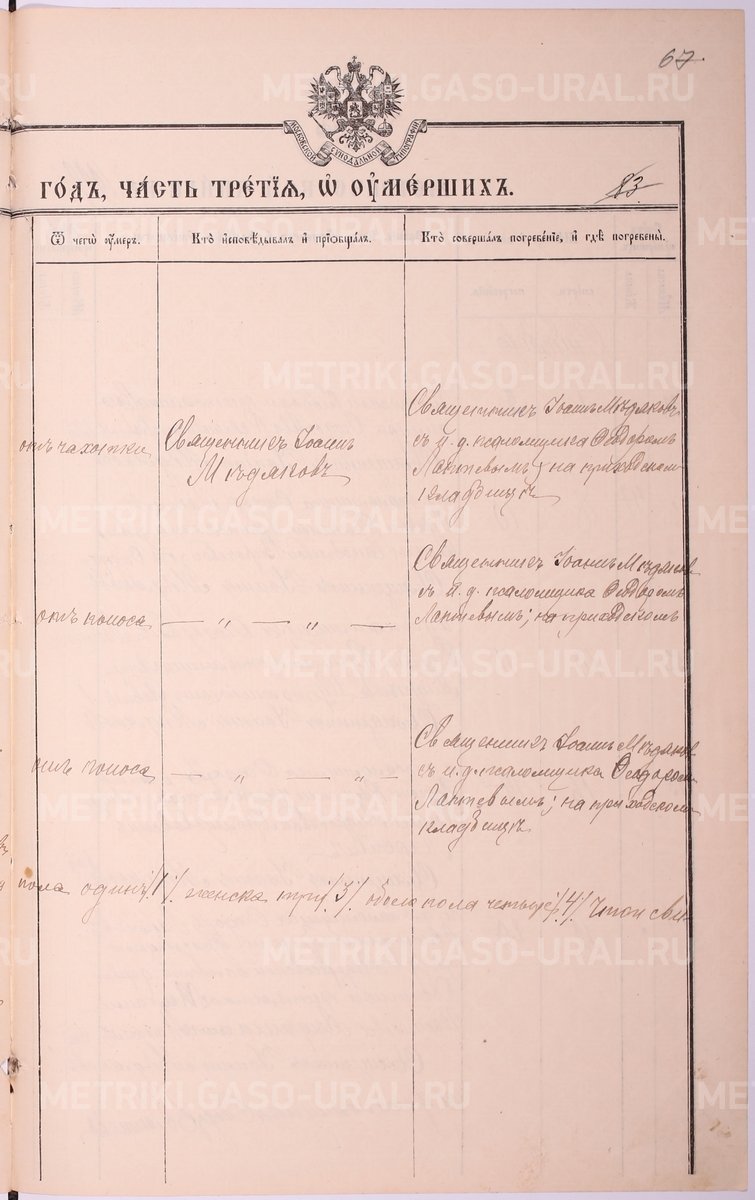 67.
МОСКОВСКОЙ СѴНОДАЛЬНОЙ ТИПОГРАФІИ
ГО́ДЪ, ЧА́СТЬ ТРЕ́ТІЯ, Ѽ ОУМЕ́РШИХЪ.
83
Ѿ чегѡ̀ оу҆́меръ.
Кто̀ и҆сповѣ́дывалъ и҆ прїѡбща́лъ.
Кто̀ соверша́лъ погребе́нїе, и҆ гдѣ̀ погребены̀.
отъ чахотки
Священникъ Іоаннъ
Мѣдяковъ
Священникъ Іоаннъ Мѣдяковъ
съ и. д. псаломщика Ѳеодоромъ
Лаптевымъ; на приходскомъ
кладбищѣ
отъ поноса
— „ — „ —
Священникъ Іоаннъ Мѣдяковъ
съ и. д. псаломщика Ѳеодоромъ
Лаптевымъ; на приходскомъ
отъ поноса
— „ — „ —
Священникъ Іоаннъ Мѣдяковъ
съ и. д. псаломщика Ѳеодоромъ
Лаптевымъ; на приходскомъ
кладбищѣ
пола одинъ /1/. женска три /3/. обоего пола четыре /4/. Что и сви-
METRIKI.GASO-URAL.RU